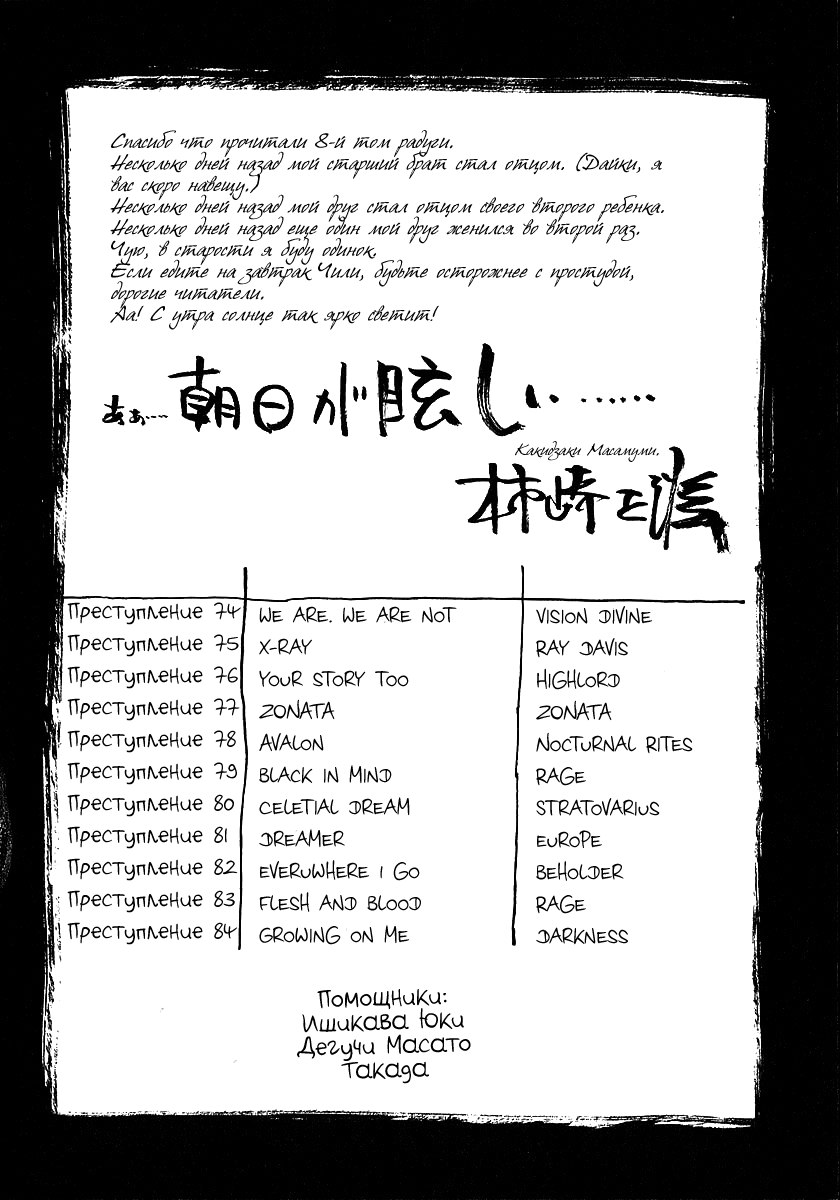 Спасибо что прочитали 8-й том радуги.
Несколько дней назад мой старший брат стал отцом. (Дайки, я
вас скоро навещу.)
Несколько дней назад мой друг стал отцом своего второго ребенка.
Несколько дней назад еще один мой друг женился во второй раз.
Чую, в старости я буду одинок.
Если едите на завтрак Чили, будьте осторожнее с простудой,
дорогие читатели.
Аа! С утра солнце так ярко светит!
あぁ… 朝日が眩しい……
Какидзаки Масамуми.
柿崎正澄
Преступление 74 WE ARE. WE ARE NOT VISION DIVINE
Преступление 75 X-RAY RAY DAVIS
Преступление 76 YOUR STORY TOO HIGHLORD
Преступление 77 ZONATA ZONATA
Преступление 78 AVALON NOCTURNAL RITES
Преступление 79 BLACK IN MIND RAGE
Преступление 80 CELETIAL DREAM STRATOVARIUS
Преступление 81 DREAMER EUROPE
Преступление 82 EVERUWHERE I GO BEHOLDER
Преступление 83 FLESH AND BLOOD RAGE
Преступление 84 GROWING ON ME DARKNESS
Помощники:
Ишикава Юки
Дегучи Масато
Такада